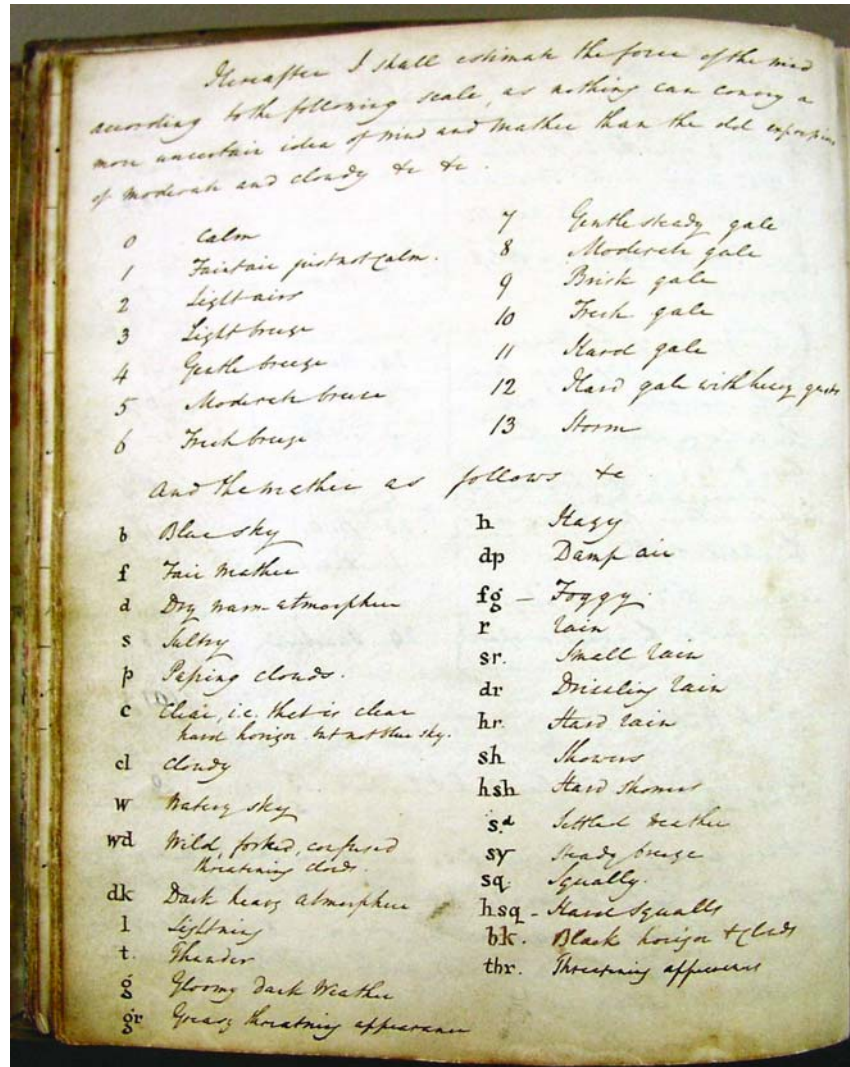 Hereafter I shall estimate the force of the wind
according to the following scale, as nothing can convey a
more uncertain idea of wind and weather than the old expressions
of moderate and cloudy &c &c.
0 Calm
1 Faint air just not calm.
2 Light airs
3 Light breeze
4 Gentle breeze
5 Moderate breeze
6 Fresh breeze
7 Gentle steady gale
8 Moderate gale
9 Brisk gale
10 Fresh gale
11 Hard gale
12 Hard gale with heavy gusts
13 Storm
and the weather as follows &c
b Blue sky
f Fair weather
d Dry warm atmosphere
s Sultry
p Passing clouds.
c Clear, i.e. that is clear
hard horizon but not blue sky.
cl Cloudy
w Watery sky
wd Wild, forked, confused
threatening clouds.
dk Dark heavy atmosphere
l Lightning
t. Thunder
g Gloomy dark weather
gr Greasy threatning appearance
h Hazy
dp Damp air
fg – Foggy.
r rain
sr. Small rain
dr Drizzling rain
hr. Hard rain
sh Showers
hsh Hard showers
s.d Settled weather
sy Steady breeze
sq. Squally.
h.sq – Hard squalls
bk. Black horizon & clouds
thr. Threatening appearance